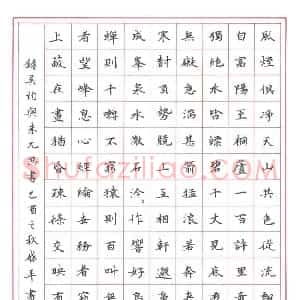 風煙俱淨天山共色從流飄
自富陽至桐廬一百許里奇
獨絕水皆縹碧千丈見底游
無礙急湍甚箭猛浪若奔夾
寒樹負勢競上互相軒邈爭
成峰泉水激石泠泠作響好
蟬則千轉不窮猿則百叫無
者望峰息心經綸世務者窺
上蔽在晝猶昏疏條交映有
錄吳均與朱元思書己酉之秋
Shufaziliao.com